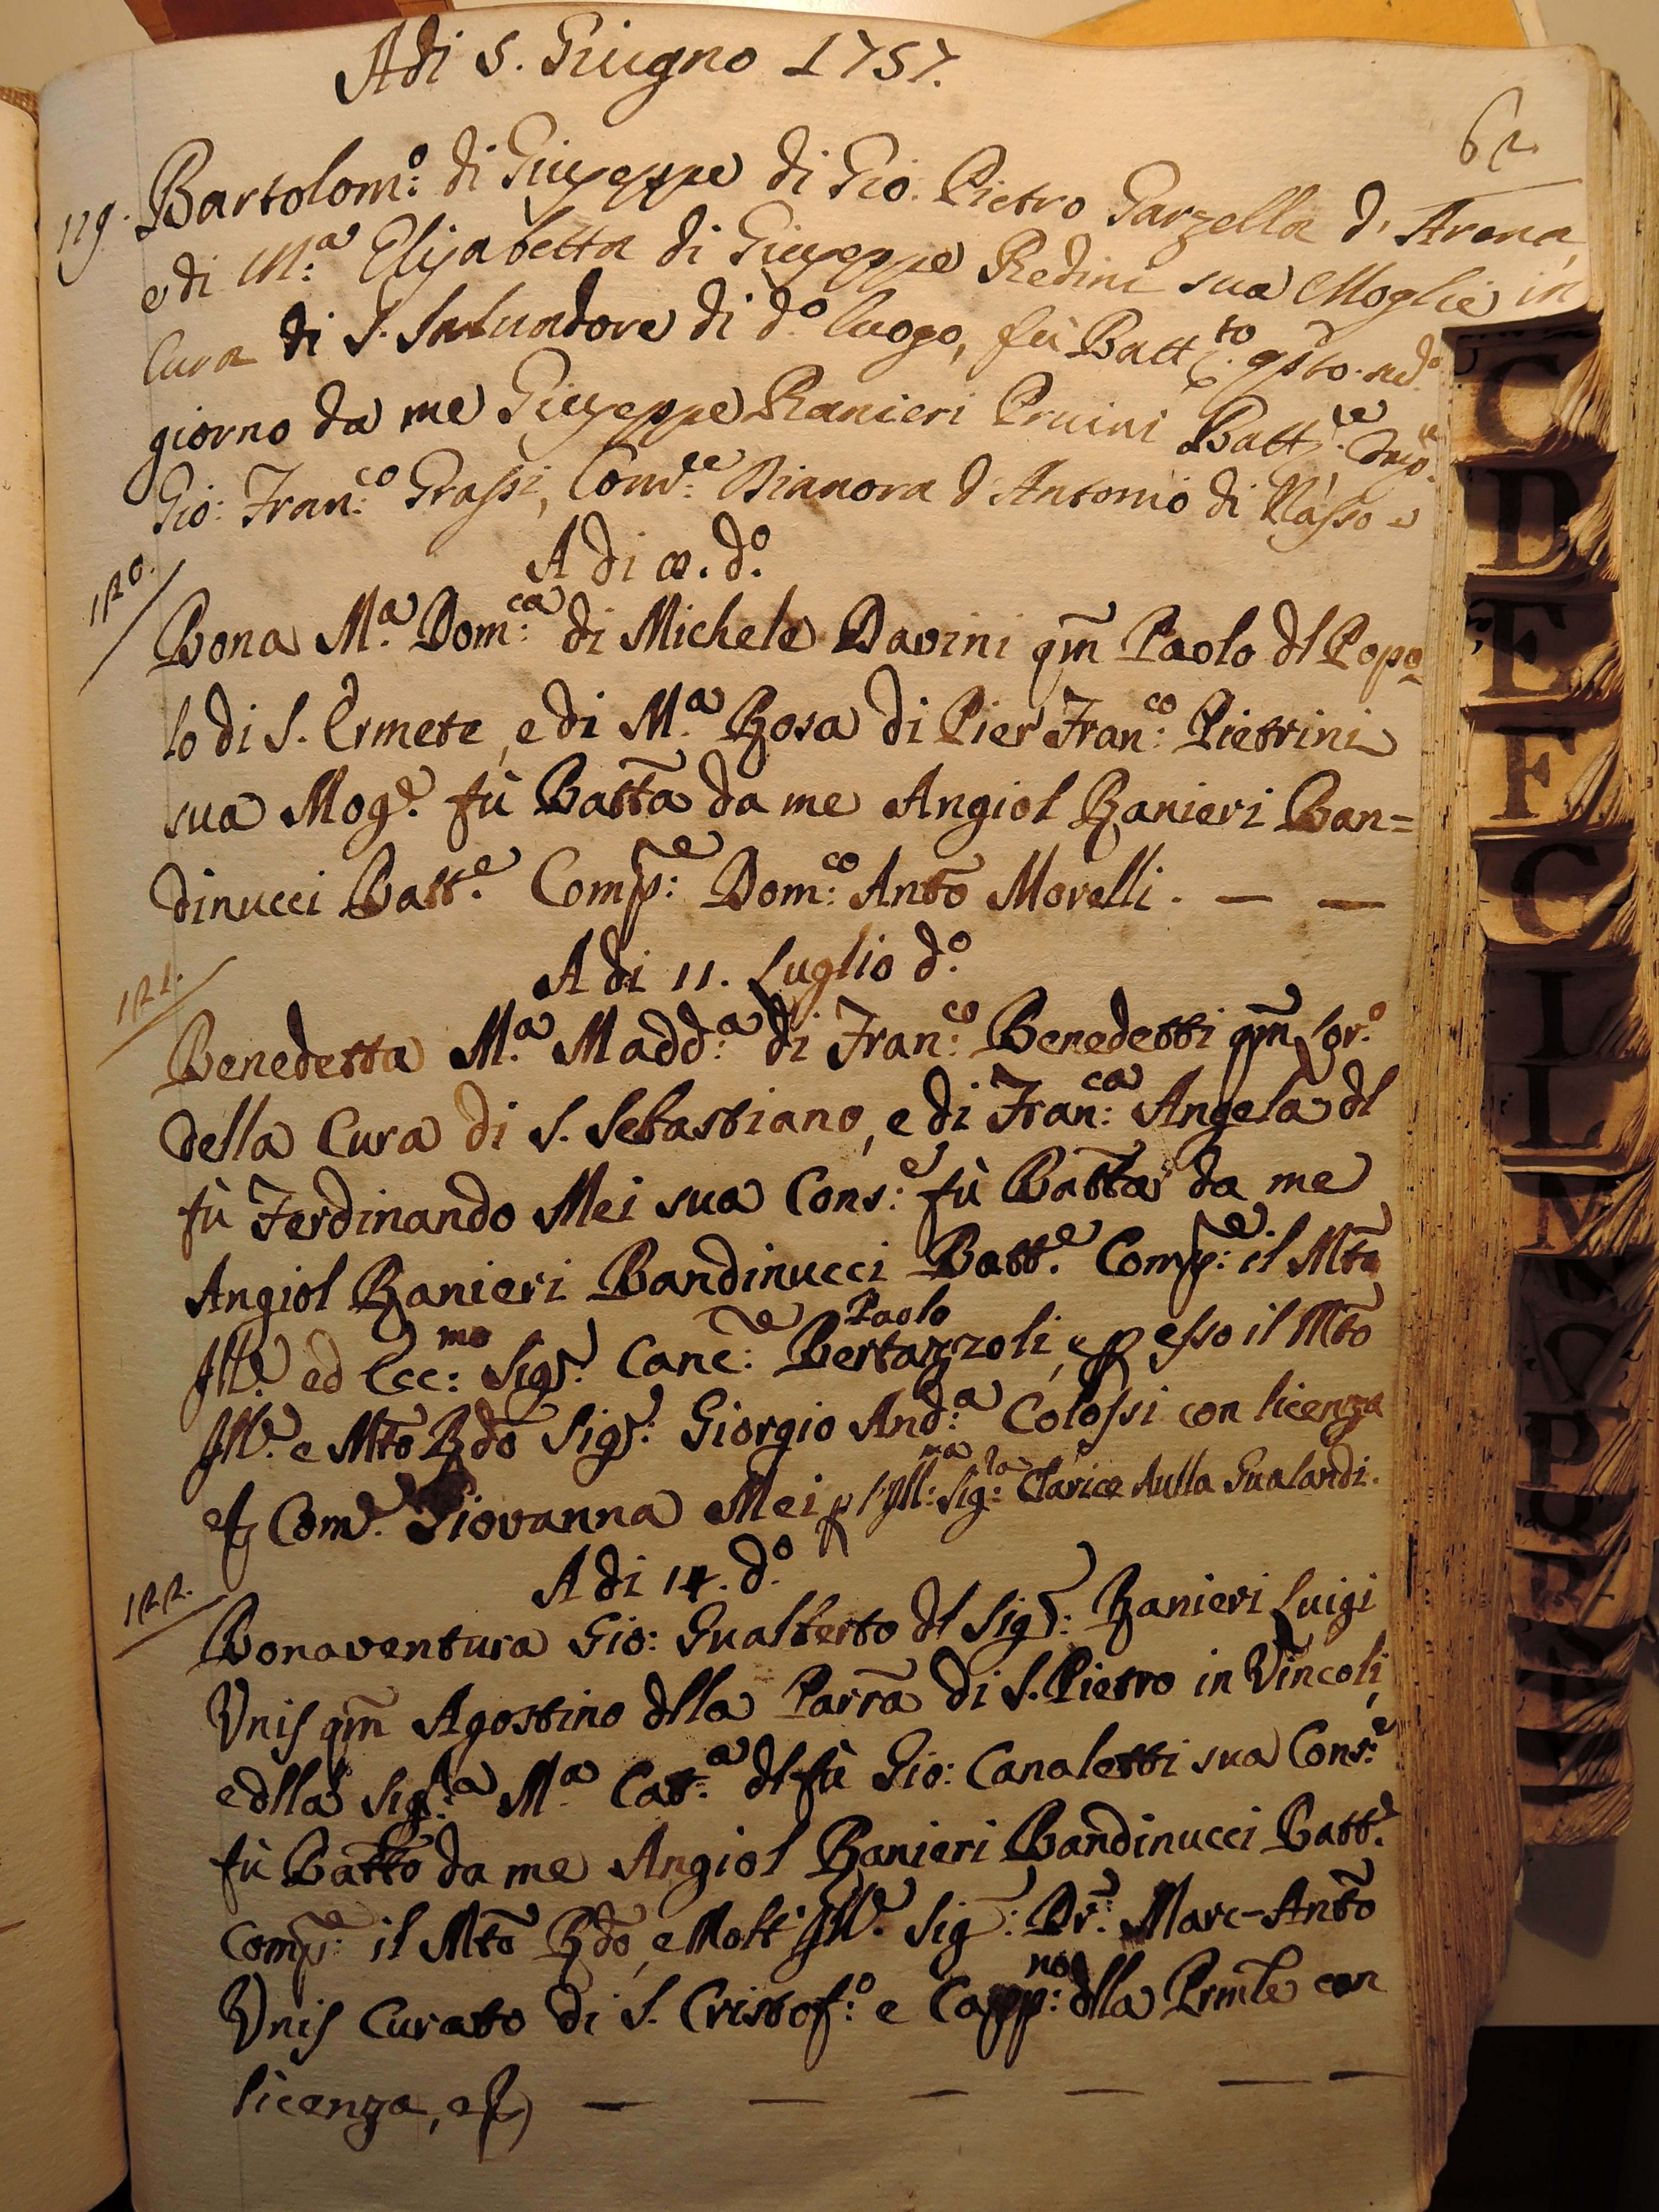 Adi 5. Giugno 1757.
62
119. Bartolom:º di Giuseppe di Gio. Pietro Garzella d' Arena,
e di M:ª Elisabetta di Giuseppe Redini sua Moglie in
Cura di S. Salvadore di d.º luogo, fù Batt:to qsto sud.º
giorno da me Giuseppe Ranieri Pruini Batt:re Comp.e
Gio: Fran:co Grassi, Com:re Dianora d'Antonio di Nasso
120.
A di 8. d.º
Bona M.ª Dom:ca di Michele Davini qm̃ Paolo dl Popo
lo di S. Ermete, e di M.ª Rosa di Pier Fran:co Pietrini
sua Mog.e fù Batt̃a da me Angiol Ranieri Ban=
dinucci Batt.e Comp:e Dom:co Antõ Morelli. — —
121.
A di 11. Luglio d.º
Benedetta M.ª Madd:ª di Fran:co Benedetti qm̃ Lor.º
della Cura di S. Sebastiano, e di Fran:ca Angela dl
fù Ferdinando Mei sua Cons:e fù Batt̃a da me
Angiol Ranieri Bandinucci Batt.e Comp:e il Mtõ
Ill.e ed Ecc:mo Sigr. Canc:e Paolo Bertazzoli, e p esso il Mtõ
Ill.e e Mtõ Rdõ Sigr: Giorgio And:ª Colossi con licenza
ef Com.e Giovanna Mei p l'Ill:ma Sig:ra Clarice Aulla Gualandi.
122.
A di 14. d.º
Bonaventura Gio: Gualberto dl Sigr: Ranieri Luigi
Unis qm̃ Agostino dlla Parrã di S. Pietro in Vincoli,
e dlla Sigr:ª M.ª Cat:ª dl fù Gio: Canaletti sua Cons:e
fù Battõ da me Angiol Ranieri Bandinucci Batt.e
Comp:e il Mtõ Rdõ, e Molt' Ill.e Sig: Dr: Marc-Antõ
Unis Curato di S. Cristof:º e Capp:no dlla Prmle con
licenza, ef — — — — — —
C
D
E
F
G
I
L
N
O
P
Q
R
S
T
V